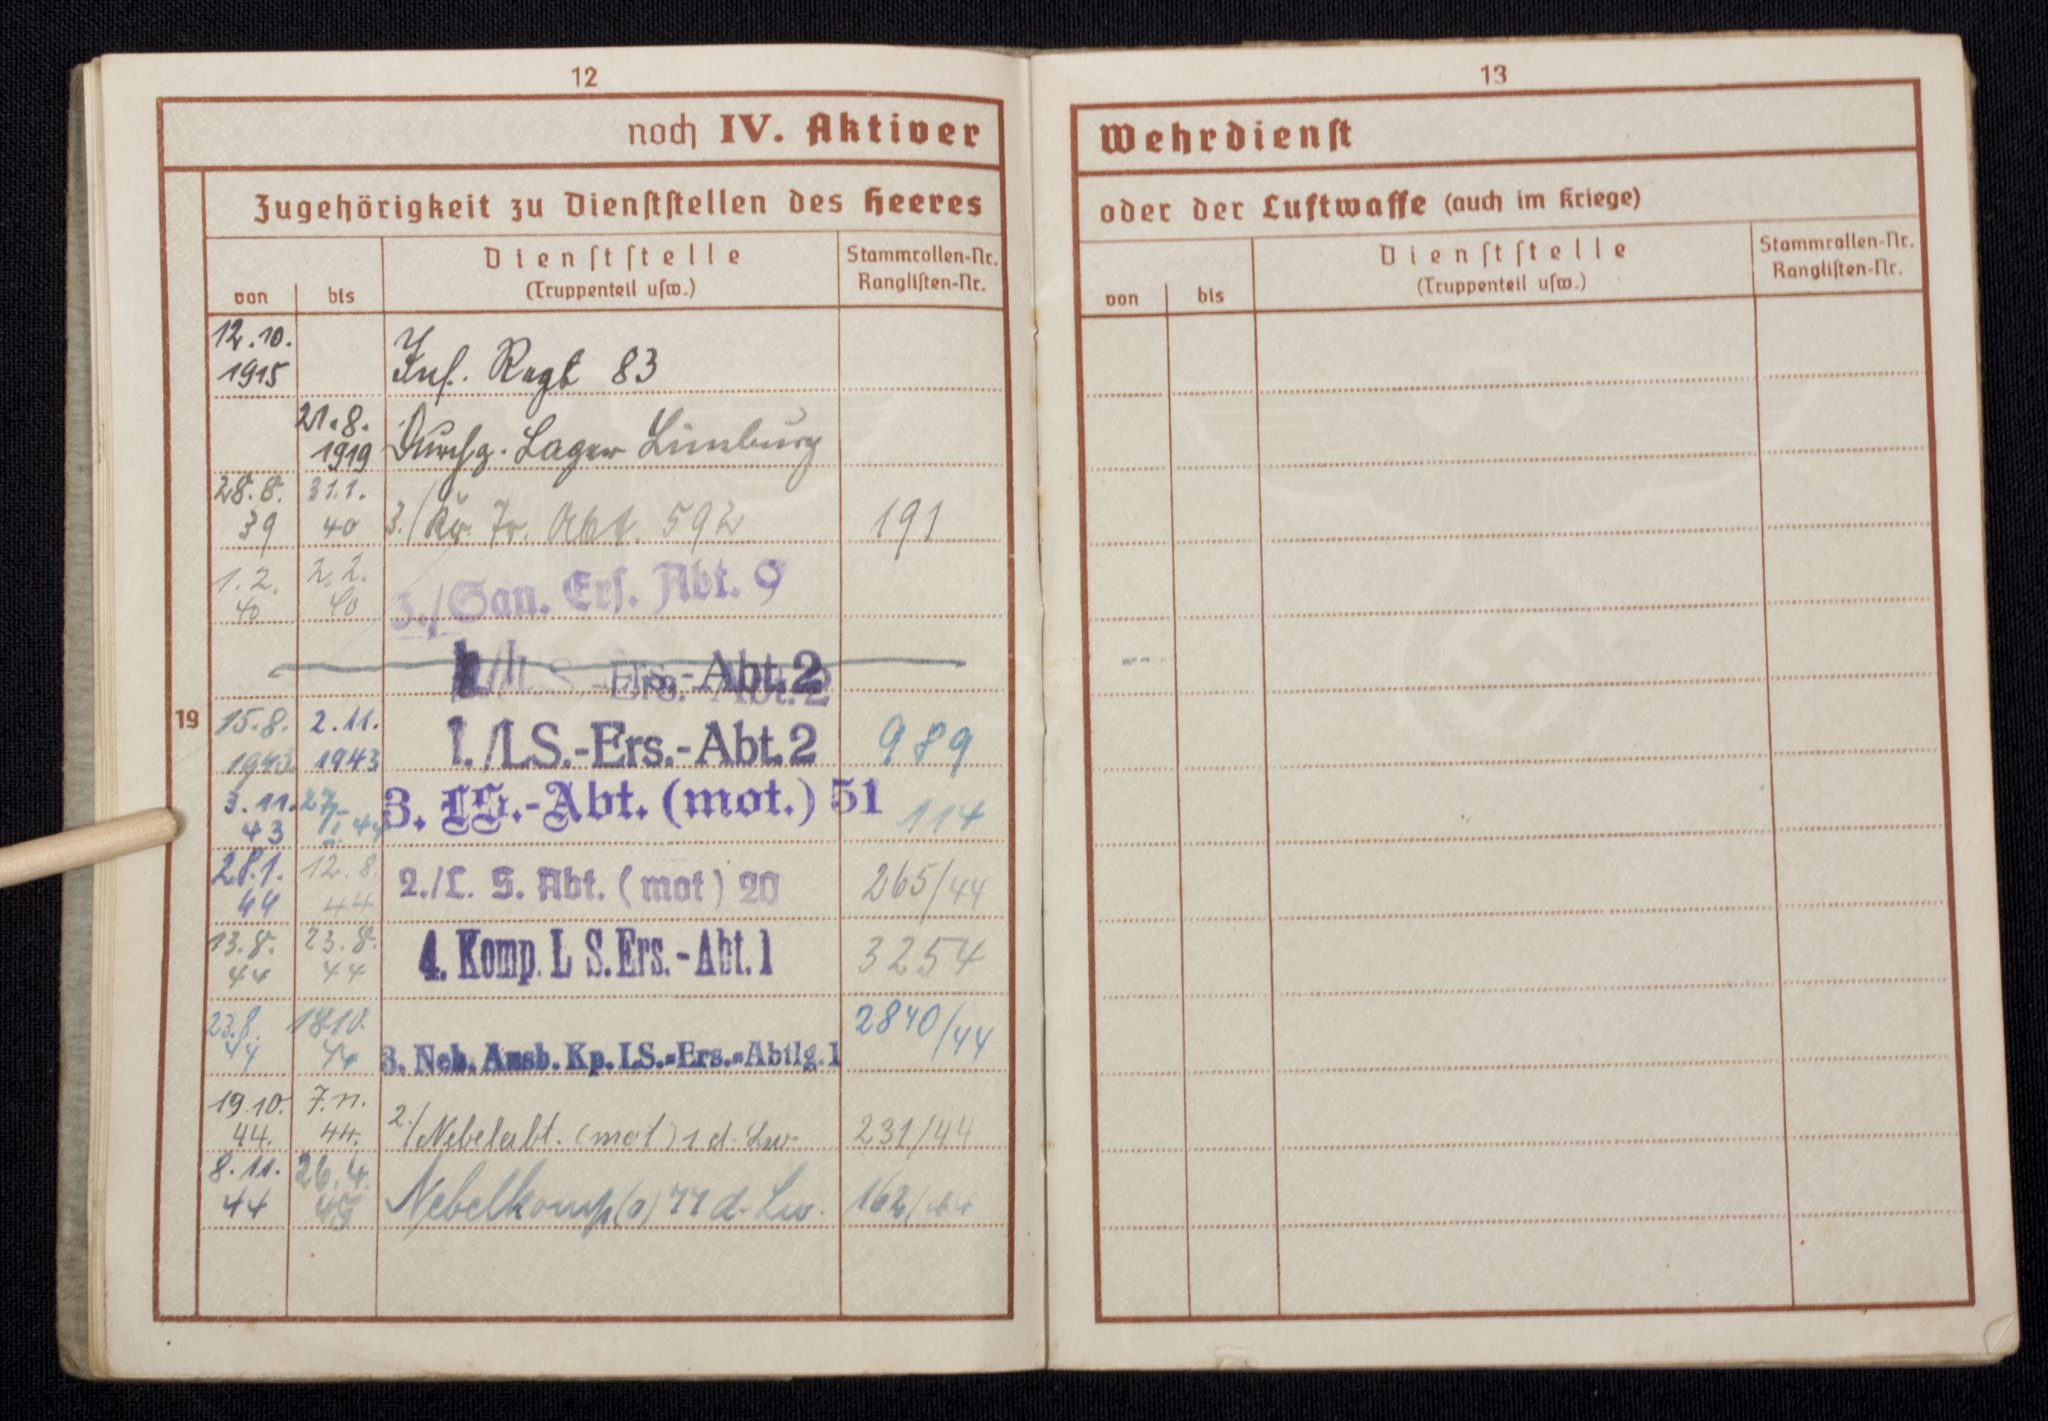 12
noch IV. Aktiver
Zugehörigkeit zu Dienststellen des Heeres
von
bis
Dienststelle
(Truppenteil usw.)
Stammrollen-Nr.
Ranglisten-Nr.
12.10.
1915
Inf. Regt 83
21.8.
1919
Durchg. Lager Limburg
28.8.
39
31.1.
40
3./Kr. Abt. 592
191
1.2.
40
2.2.
40
3./San. Ers. Abt. 9
Ers.-Abt. 2
19
15.8.
1943
2.11.
1943
1./LS.-Ers.-Abt. 2
989
3.11.
43
27.
44
3. LS.-Abt. (mot.) 51
114
28.1.
44
12.8.
44
2./L. S. Abt. (mot) 20
265/44
13.8.
44
23.8.
44
4. Komp. L S. Ers.-Abt. 1
3254
23.8.
44
18.10.
44
3. Neb. Ausb. Kp. LS.-Ers.-Abtlg. 1
2840/44
19.10.
44.
7.11.
44.
2./Nebelabt. (mot) 1 d. Lw.
231/44
8.11.
44
26.4.
45
Nebelkomp (o) 77 d. Lw.
162/44
13
Wehrdienst
oder der Luftwaffe (auch im Kriege)
von
bis
Dienststelle
(Truppenteil usw.)
Stammrollen-Nr.
Ranglisten-Nr.